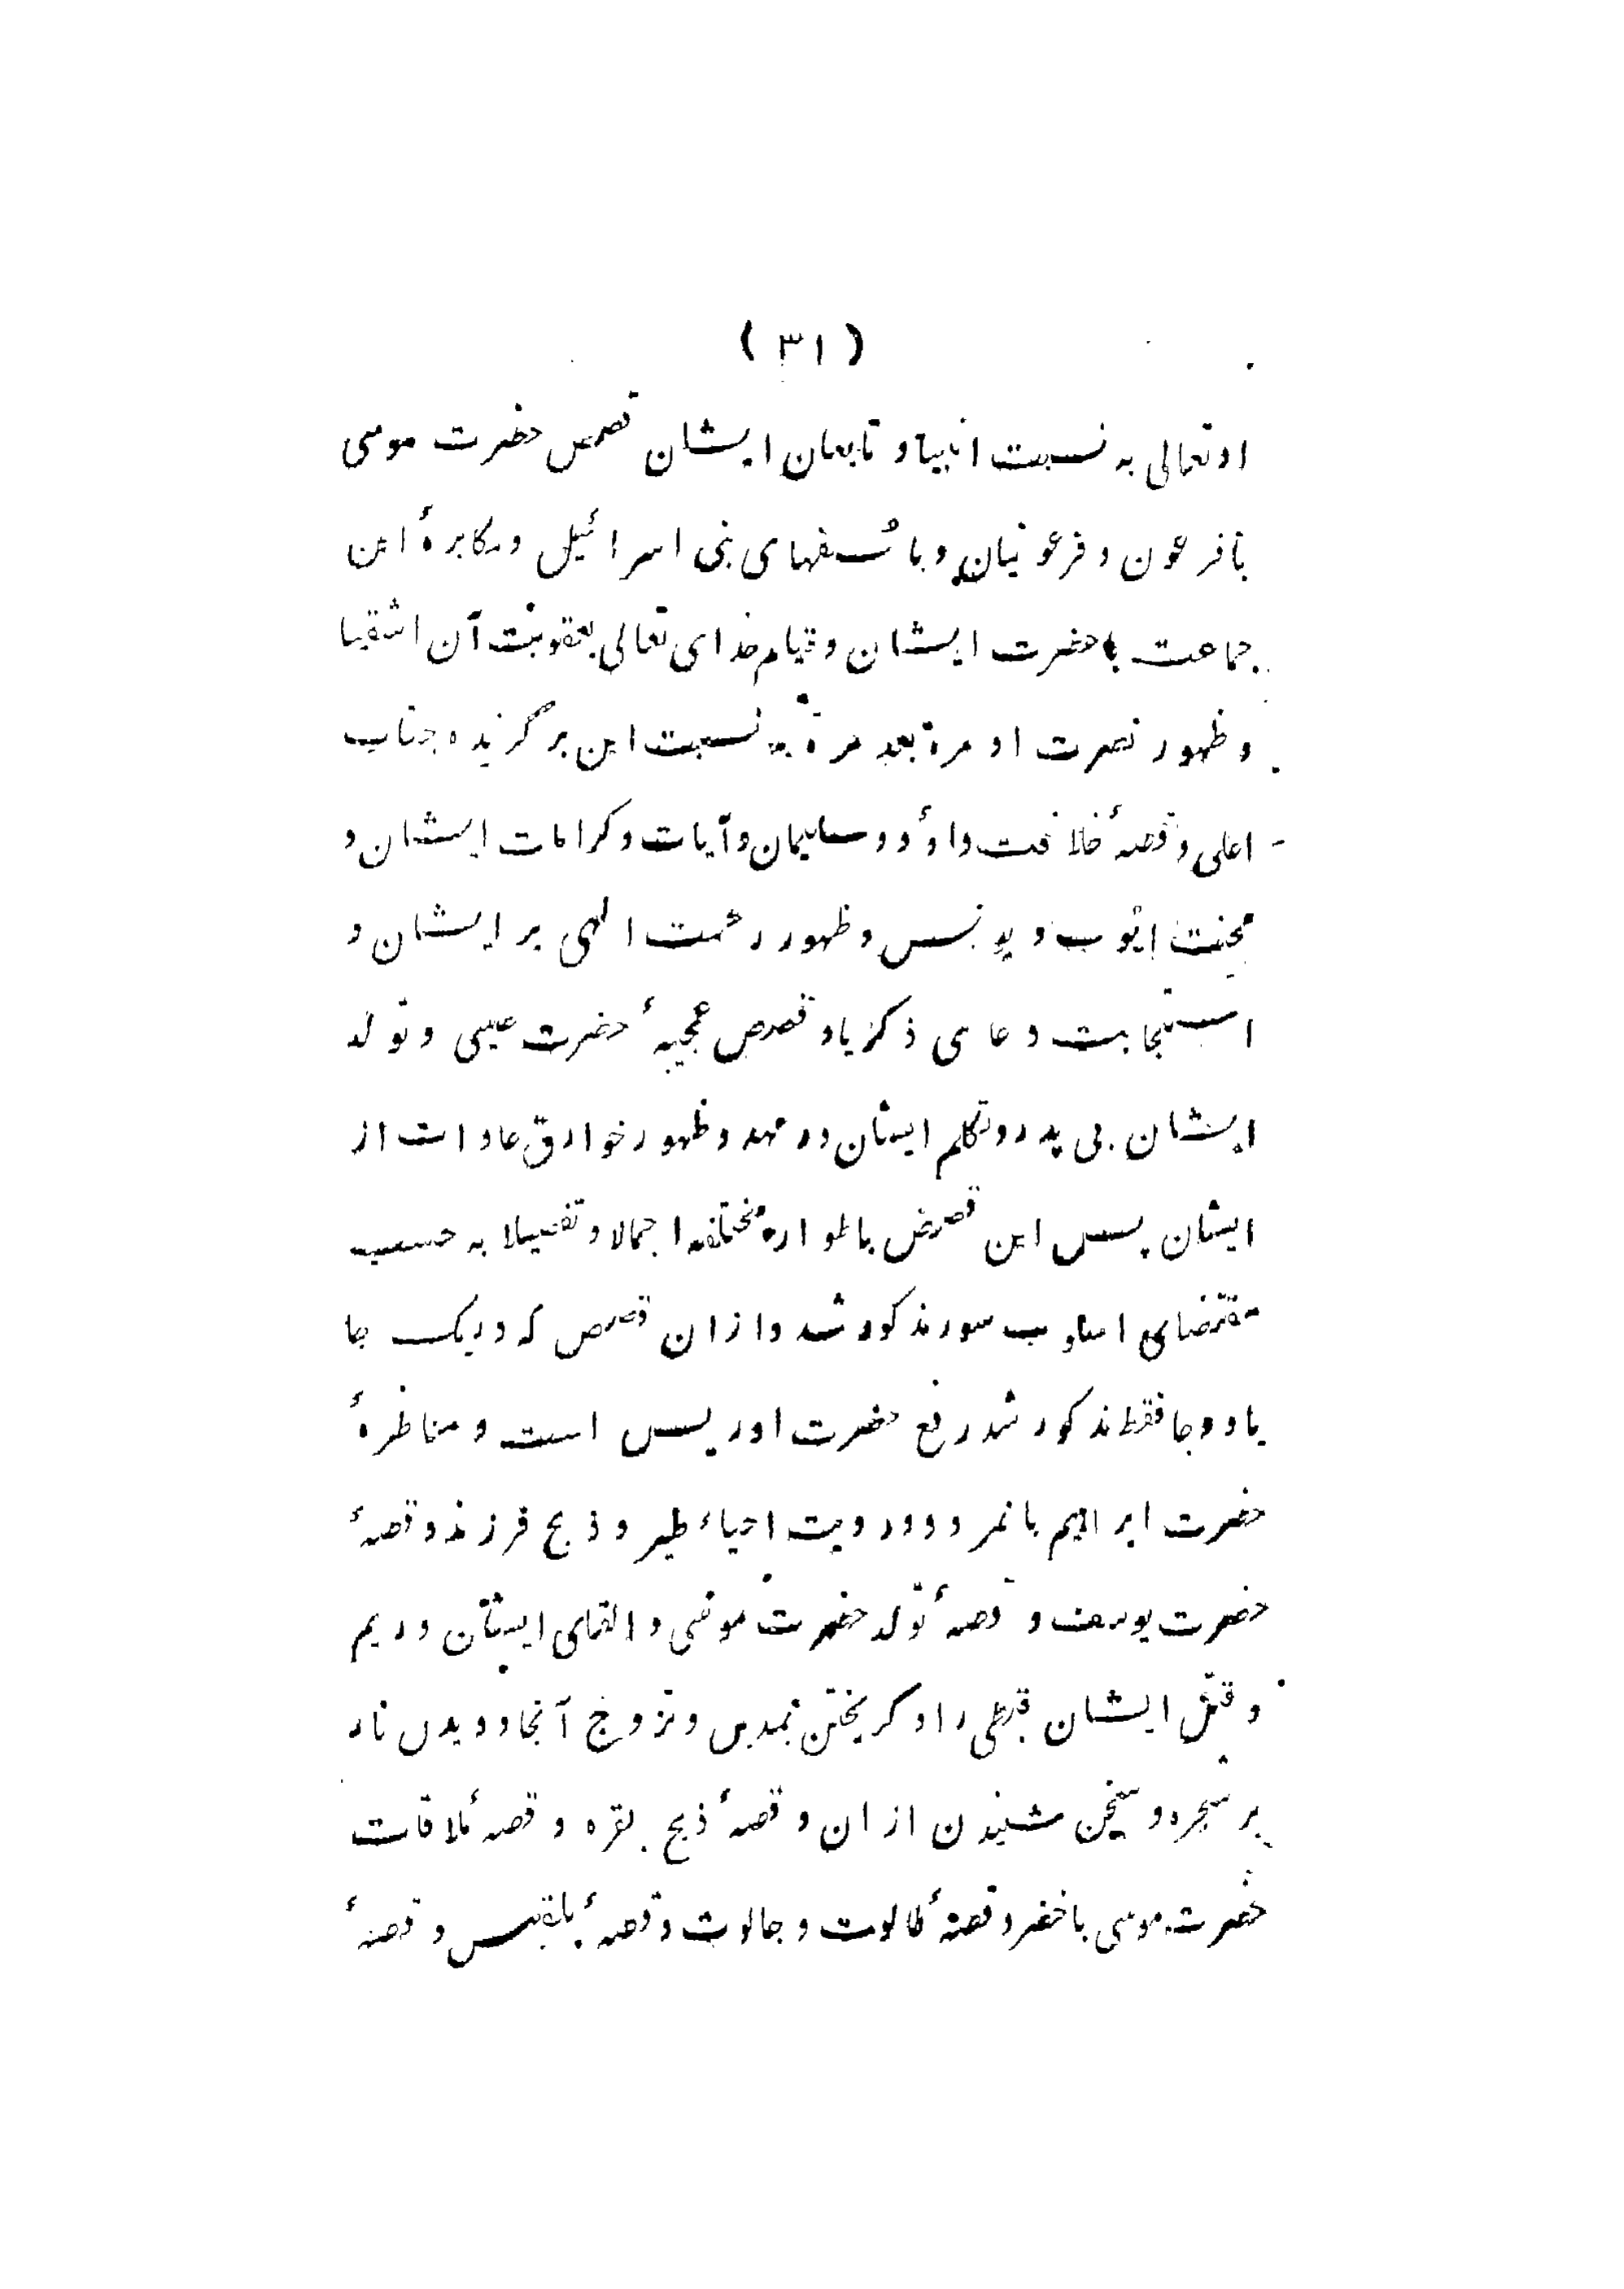 ( ۳۱ )
او تعالی به نسبت انبیا و تابعان ایشان قصص حضرت موسی
با فرعون و فرعونیان و با سُفهای بنی اسرائیل و مکابرهٔ این
جماعت با حضرت ایشان و قیام خدای تعالی بعقوبت آن اشقیا
و ظهور نصرت او مرة بعد مرة به نسبت این برگزیده جناب
اعلی و قصهٔ خلافت داؤد و سلیمان و آیات و کرامات ایشان و
محنت ایّوب و یونس و ظهور رحمت الهی بر ایشان و
استجابت دعای ذکریا و قصص عجیبهٔ حضرت عیسی و تولد
ایشان بی پدر و تکلم ایشان در مهد و ظهور خوارق عادات از
ایشان پس این قصص باطواره مختلفه اجمالا و تفصیلا به حسب
مقتضای اسلوب سور مذکور شد و از ان قصص که در یک جا
یا دو جا فقط مذکور شد رفع حضرت ادریس است و مناظرهٔ
حضرت ابراهیم با نمرود و رویت احیاء طیر و ذبح فرزند و قصهٔ
حضرت یوسف و قصهٔ تولد حضرت موسی و القای ایشان در یم
و قتل ایشان قبطی را و گریختن بمدین و تزوج آنجا و دیدن نار
بر شجره و سخن شنیدن از ان و قصهٔ ذبح بقره و قصهٔ ملاقات
حضرت موسی با خضر و قصهٔ طالوت و جالوت و قصهٔ بلقیس و قصهٔ